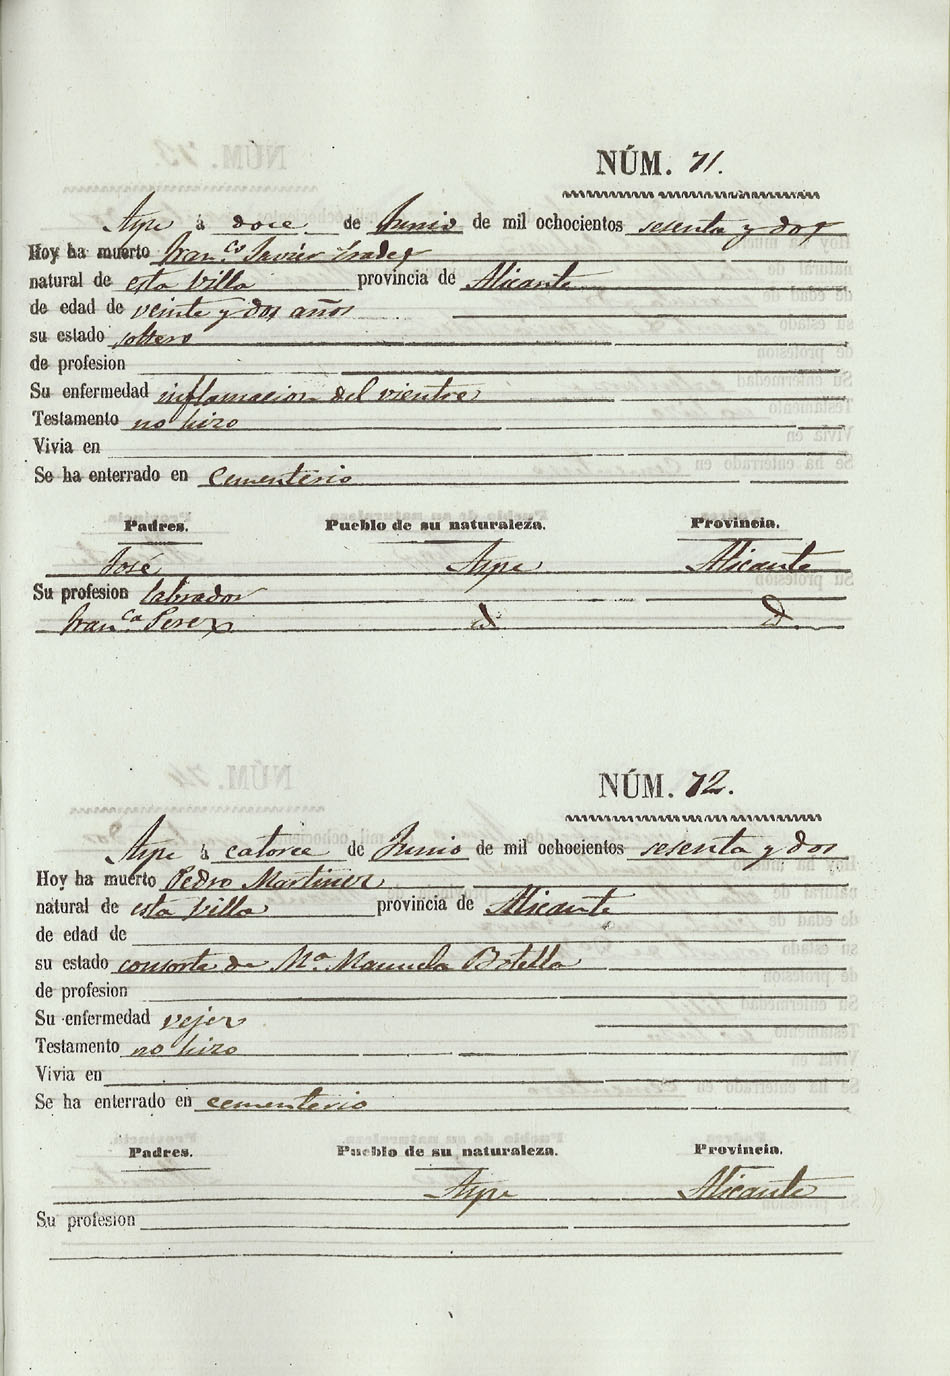 NÚM. 71.
Aspe á doce de Junio de mil ochocientos sesenta y dos
Hoy ha muerto Fran.co Javiér Prades
natural de esta Villa provincia de Alicante
de edad de veinte y dos años
su estado soltero
de profesion
Su enfermedad inflamacion del vientre
Testamento no hizo
Vivia en
Se ha enterrado en Cementerio
Padres. Pueblo de su naturaleza. Provincia.
José Aspe Alicante
Su profesion labrador
Fran.ca Perez id id.
NÚM. 72.
Aspe á catorce de Junio de mil ochocientos sesenta y dos
Hoy ha muerto Pedro Martinez
natural de esta Villa provincia de Alicante
de edad de
su estado consorte de M.a Manuela Botella
de profesion
Su enfermedad vejez
Testamento no hizo
Vivia en
Se ha enterrado en cementerio
Padres. Pueblo de su naturaleza. Provincia.
Aspe Alicante
Su profesion